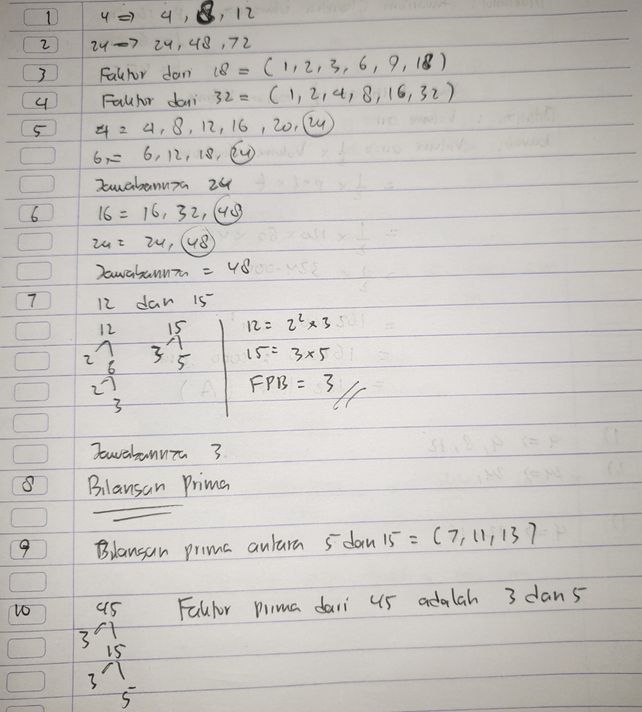 1 4 => 4, 8, 12
2 24 => 24, 48, 72
3 Faktor dari 18 = (1, 2, 3, 6, 9, 18)
4 Faktor dari 32 = (1, 2, 4, 8, 16, 32)
5 4 = 4, 8, 12, 16, 20, 24
6 = 6, 12, 18, 24
Jawabannya 24
6 16 = 16, 32, 48
24 = 24, 48
Jawabannya = 48
7 12 dan 15
12 15 12 = 2² x 3
2 6 3 5 15 = 3 x 5
2 3 FPB = 3 //
Jawabannya 3
8 Bilangan Prima
9 Bilangan prima antara 5 dan 15 = (7, 11, 13)
10 45 Faktor prima dari 45 adalah 3 dan 5
3 15
3 5